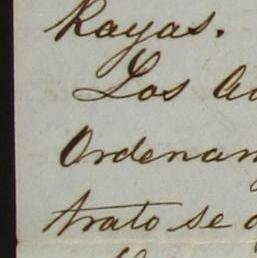 Rayas.
Los
Ordenan
trato se